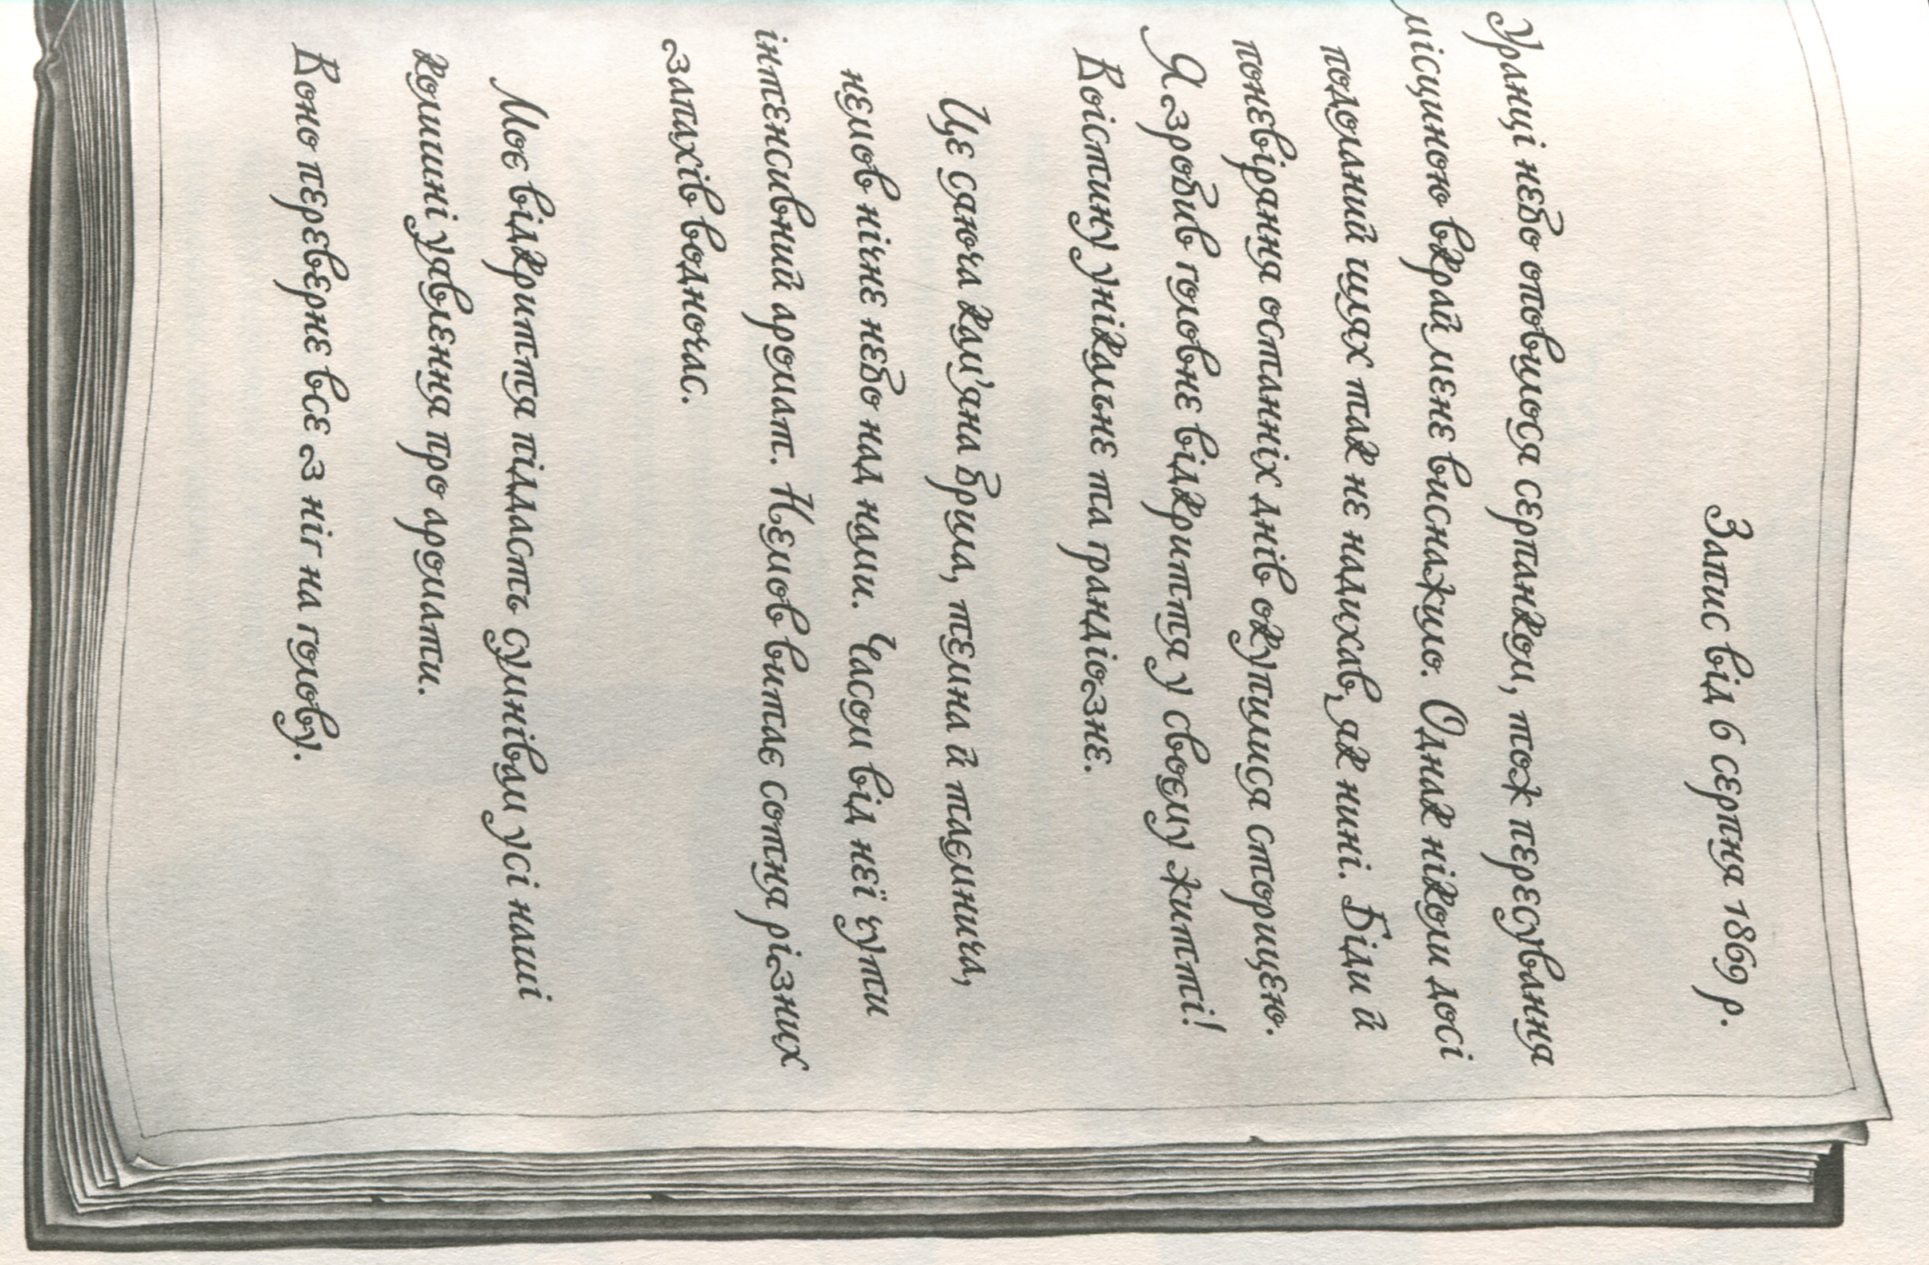 Запис від 6 серпня 1869 р.
Уранці небо оповилося серпанком, тож пересування
місциною вкрай мене виснажило. Однак ніколи досі
подоланий шлях так не надихав, як нині. Біди й
поневіряння останніх днів окупилися сторицею.
Я зробив головне відкриття у своєму житті!
Воістину унікальне та грандіозне.
Це сяюча кам’яна брила, темна й таємнича,
немов нічне небо над нами. Часом від неї чути
інтенсивний аромат. Немов витає сотня різних
запахів водночас.
Моє відкриття піддасть сумнівам усі наші
колишні уявлення про аромати.
Воно переверне все з ніг на голову.